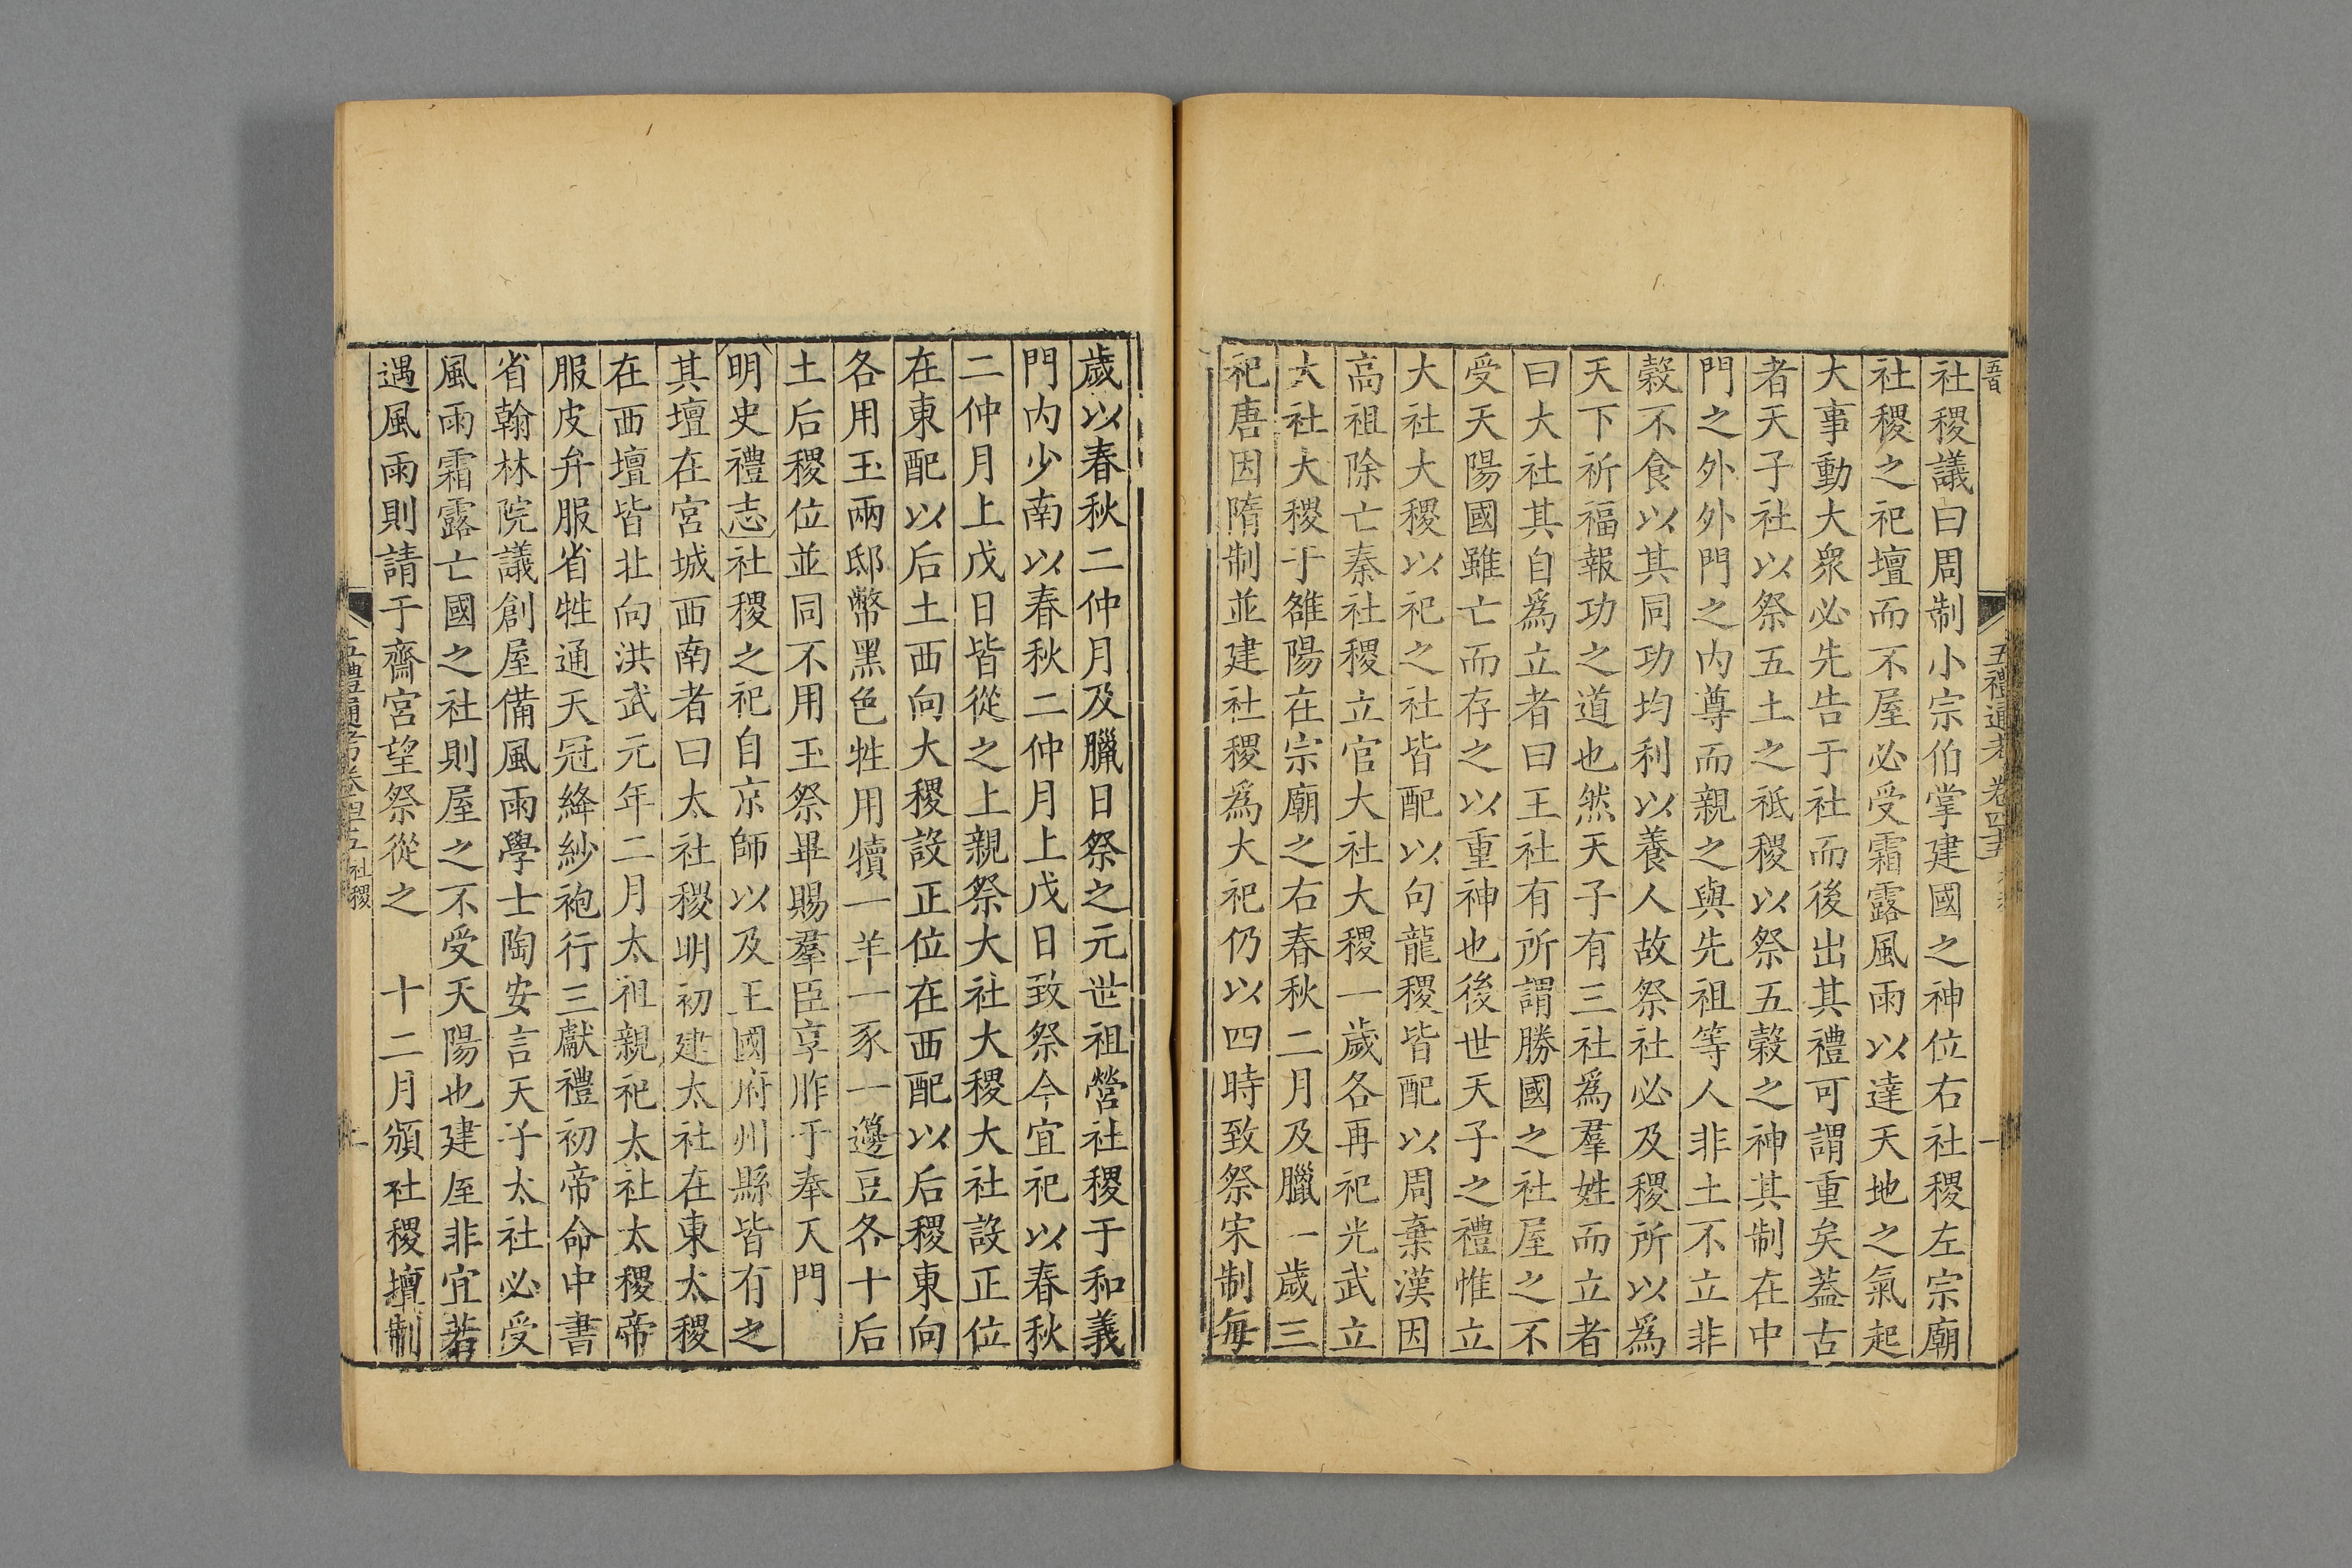 社稷議曰周制小宗伯掌建國之神位右社稷左宗廟
社稷之祀壇而不屋必受霜露風雨以達天地之氣起
大事動大衆必先告于社而後出其禮可謂重矣葢古
者天子社以祭五土之祗稷以祭五穀之神其制在中
門之外外門之内尊而親之與先祖等人非土不立非
穀不食以其同功均利以養人故祭社必及稷所以爲
天下祈福報功之道也然天子有三社爲羣姓而立者
曰大社其自爲立者曰王社有所謂勝國之社屋之不
受天陽國雖亡而存之以重神也後世天子之禮惟立
大社大稷以祀之社皆配以句龍稷皆配以周棄漢因
高祖除亡秦社稷立官大社大稷一歲各再祀光武立
大社大稷于雒陽在宗廟之右春秋二月及臘一歲三
祀唐因隋制並建社稷爲大祀仍以四時致祭宋制每
歲以春秋二仲月及臘日祭之元世祖營社稷于和義
門内少南以春秋二仲月上戊日致祭今宜祀以春秋
二仲月上戊日皆從之上親祭大社大稷大社設正位
在東配以后土西向大稷設正位在西配以后稷東向
各用玉兩邸幣黑色牲用犢一羊一豕一籩豆各十后
土后稷位並同不用玉祭畢賜羣臣享胙于奉天門
明史禮志社稷之祀自京師以及王國府州縣皆有之
其壇在宮城西南者曰太社稷明初建太社在東太稷
在西壇皆北向洪武元年二月太祖親祀太社太稷帝
服皮弁服省牲通天冠絳紗袍行三獻禮初帝命中書
省翰林院議創屋備風雨學士陶安言天子太社必受
風雨霜露亡國之社則屋之不受天陽也建屋非宜若
遇風雨則請于齋宮望祭從之　十二月頒社稷壇制
五禮通考卷四十五 社稷